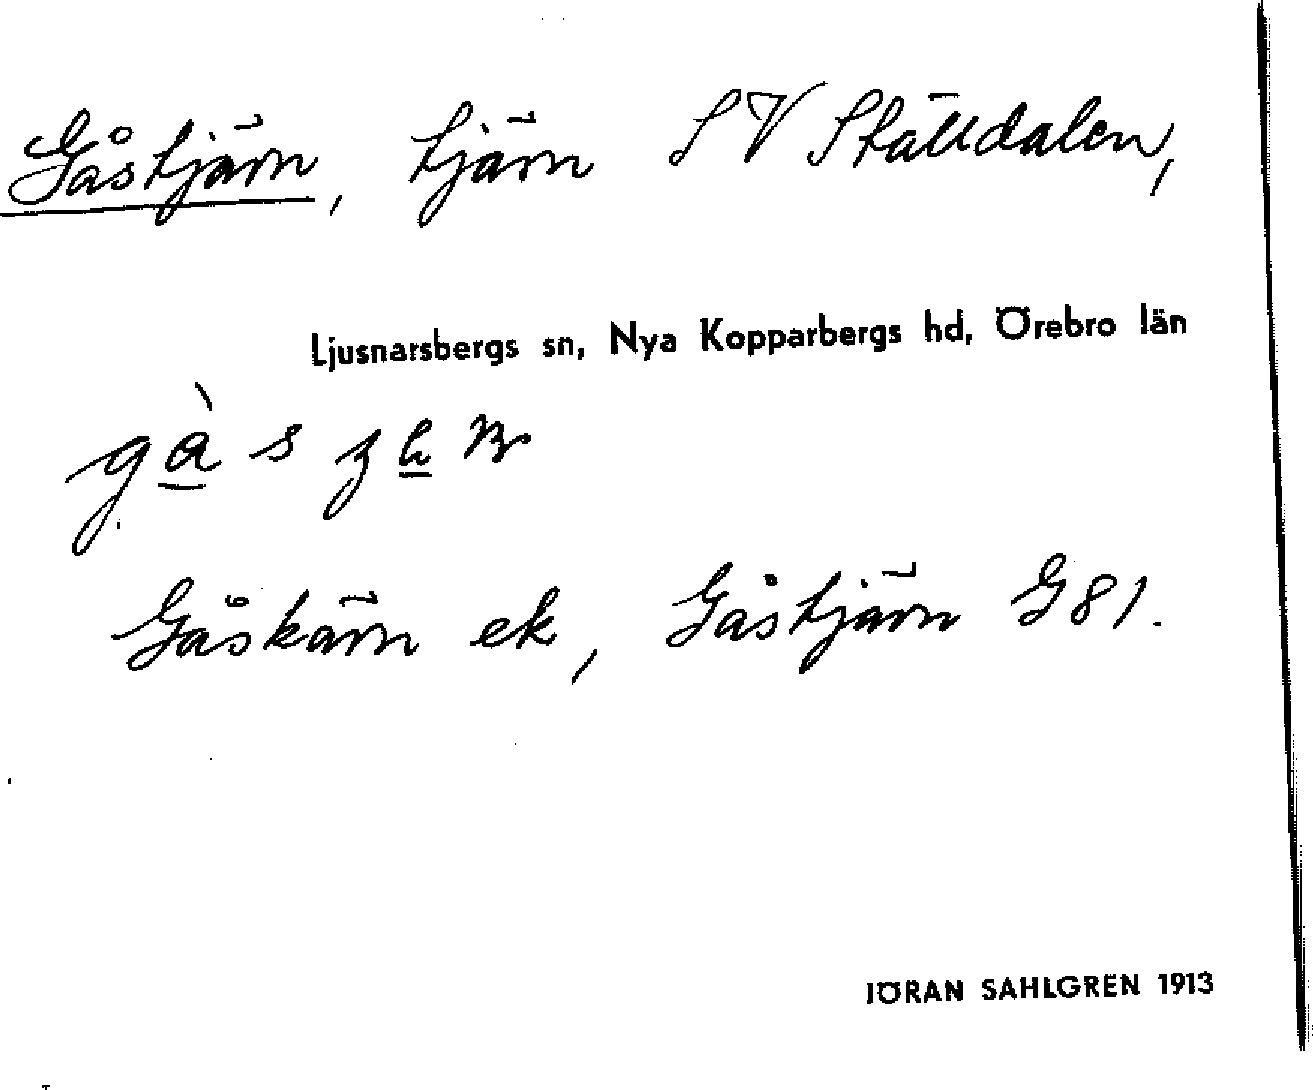 Gåstjärn, tjärn SV Ställdalen,
Ljusnarsbergs sn, Nya Kopparbergs hd, Örebro län
Gåskärn ek, Gåstjärn G81.
JÖRAN SAHLGREN 1913